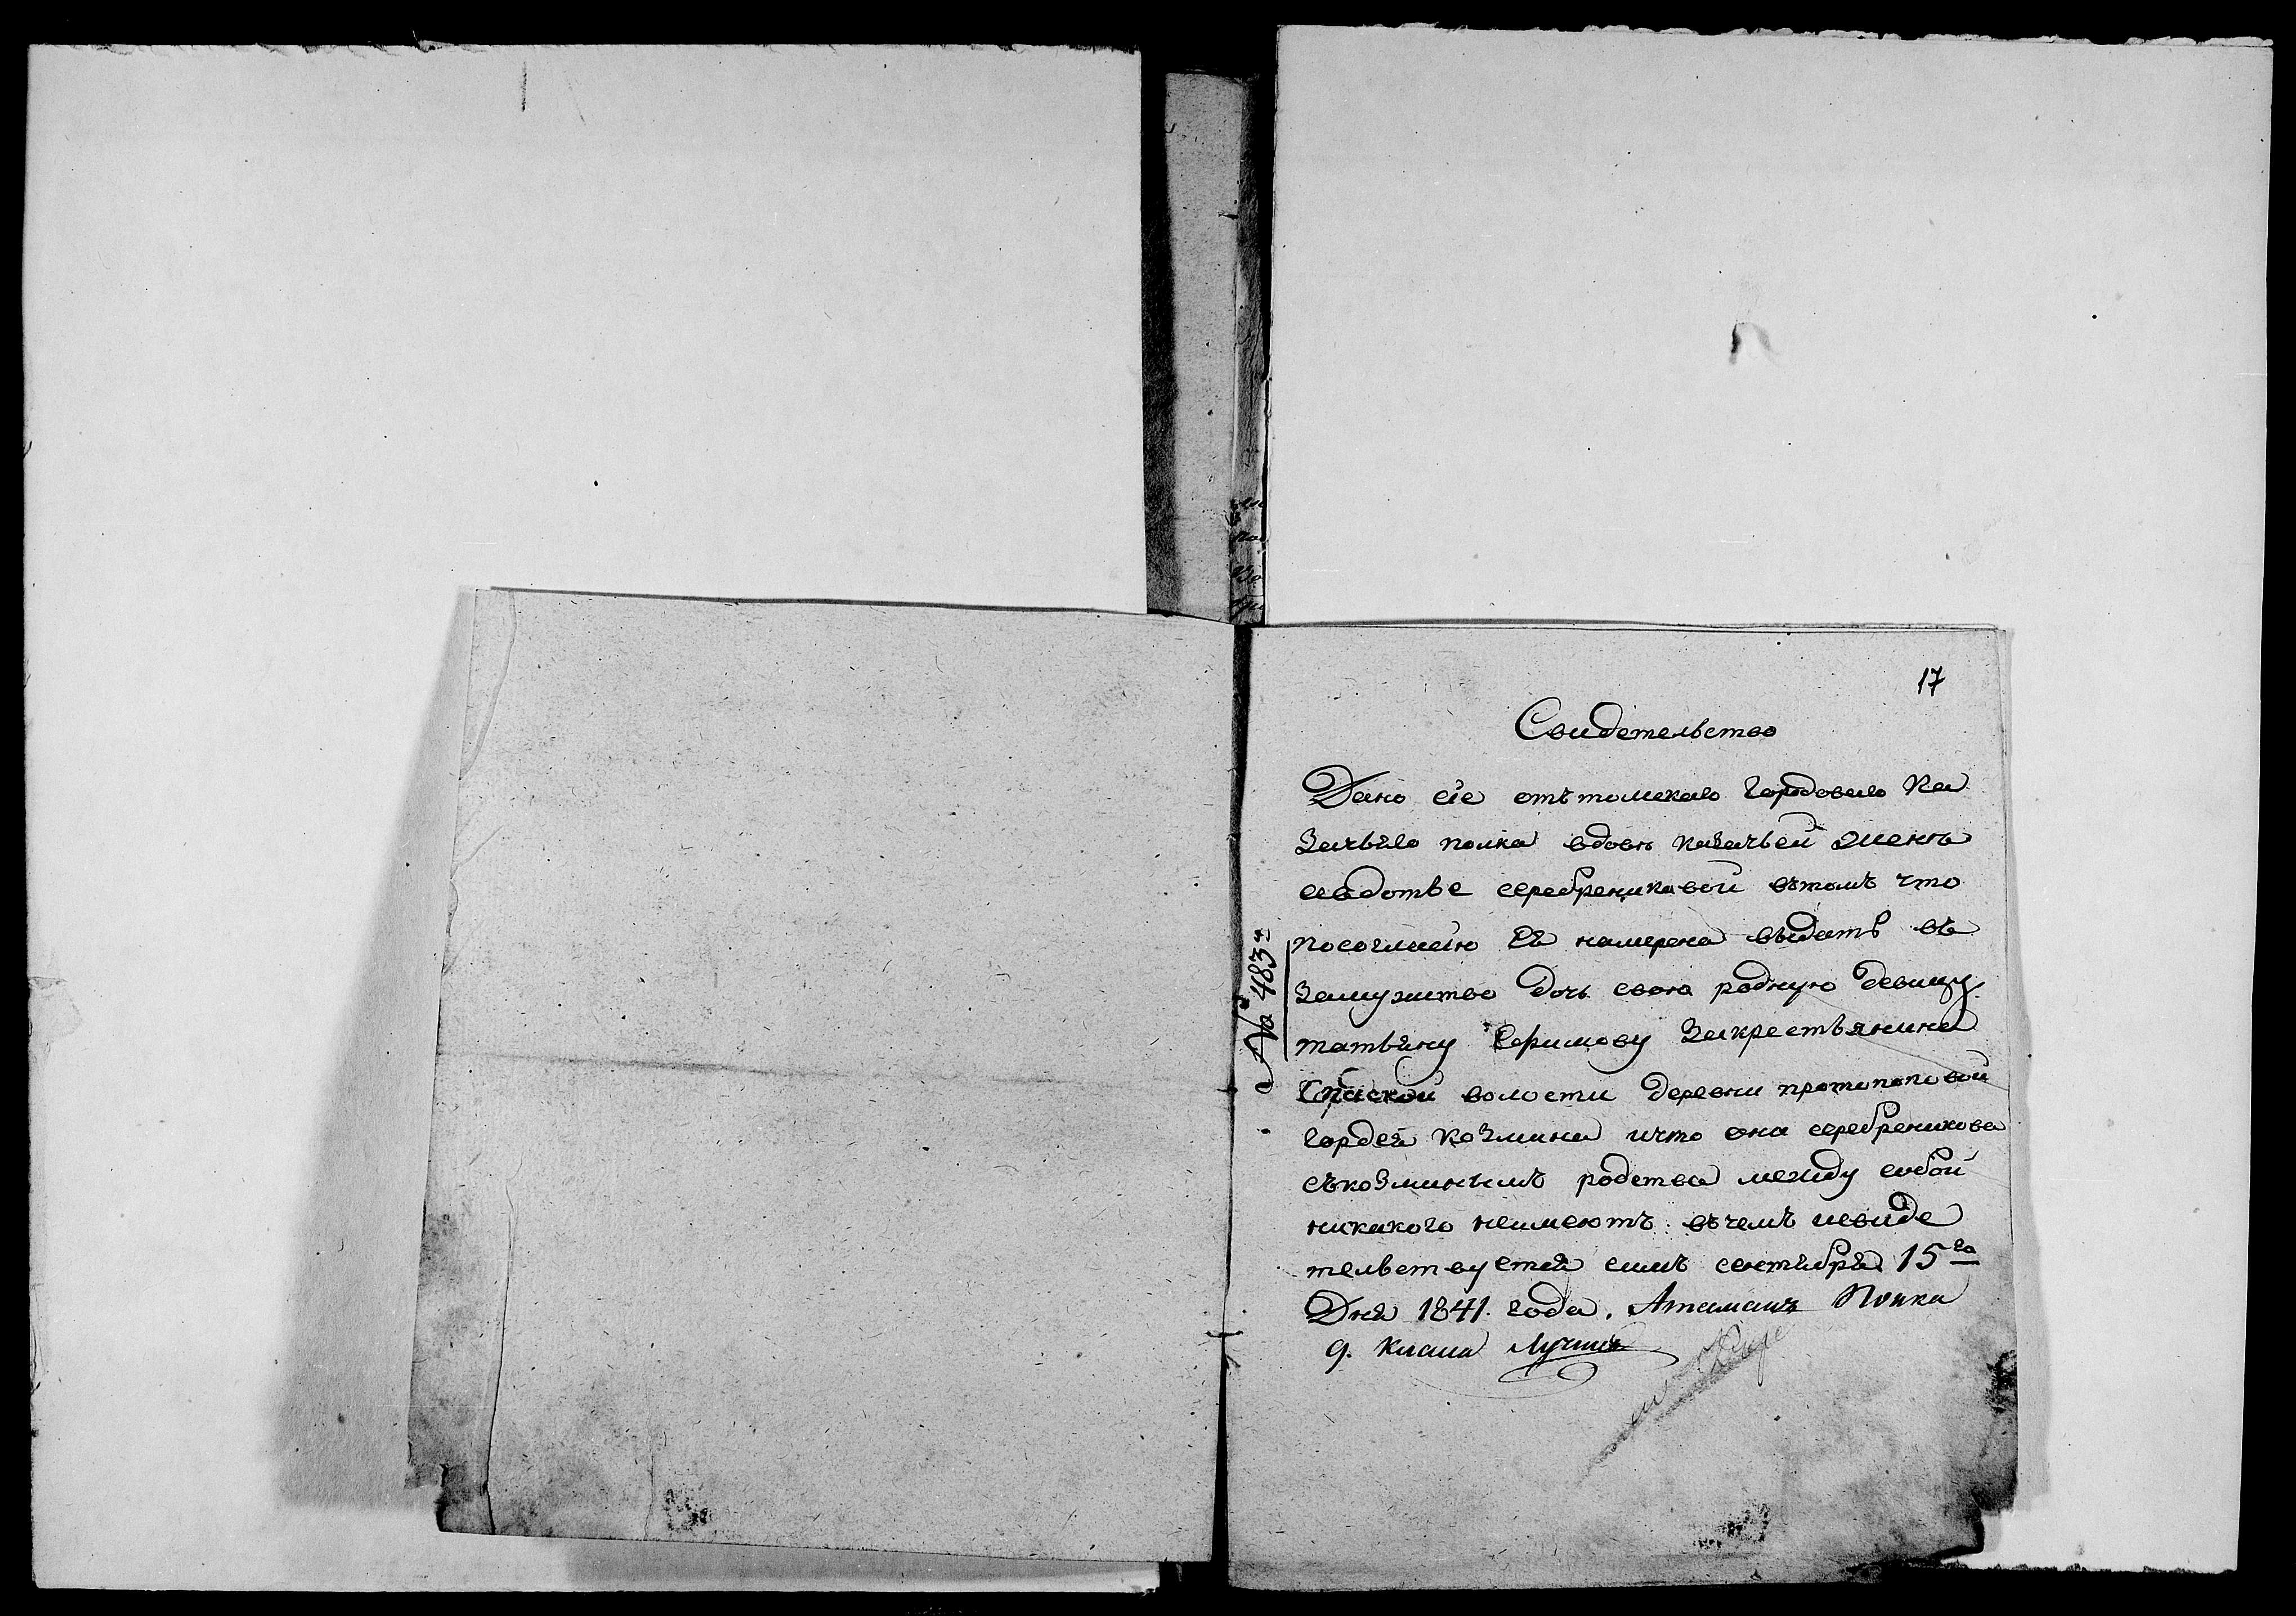 17
Свидетельство
Дано сіе отъ томскаго городоваго Ка
зачьяго полка вдовѣ казачьей женѣ
евдотье серебрениковой вътомъ что
посогласію Ея намерена выдать въ
замужство дочь свою родную девицу
татьяну Ефимову Закрестьянина
Спаской волости деревни протопоповой
гордея козмина ичто она серебреникова
съкозминымъ родства между собой
никакого неимеютъ. въчемъ исвиде
тельствуется симъ сентября 15го
Дня 1841. года. Атаманъ Полка
9. класа Лучшъ
№ 483й